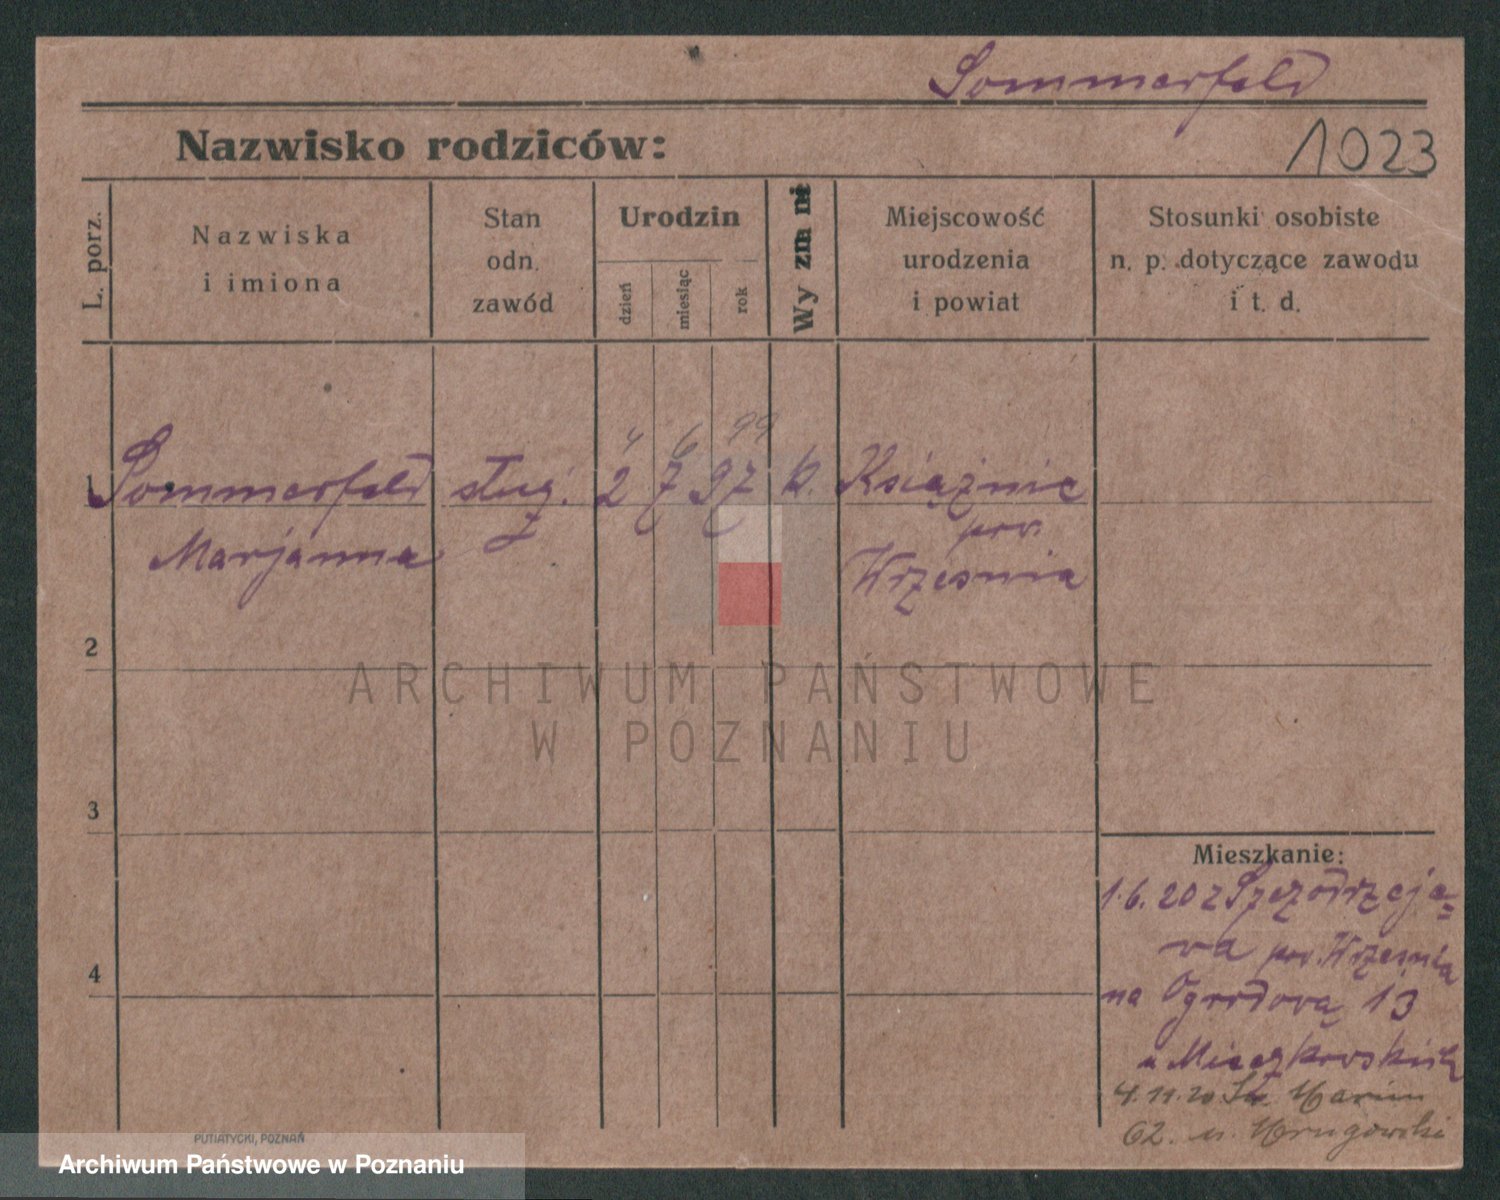 Sommerfeld
Nazwisko rodziców:
1023
L. porz.
Nazwiska
i imiona
Stan
odn.
zawód
Urodzin
dzień
miesiąc
rok
Wy zna nie
Miejscowość
urodzenia
i powiat
Stosunki osobiste
n. p. dotyczące zawodu
i t. d.
4 6 99
1 Sommerfeld służ. 2 7 97 k. Książnic
Marjanna
pow.
Września
2
3
4
ARCHIWUM PAŃSTWOWE
W POZNANIU
Mieszkanie:
1.6.20 z Szczodrzeja=
wa pow. Września
na Ogrodową 13
u
4.11.20 Św. Marcin
62. u.
PUTIATYCKI, POZNAŃ
Archiwum Państwowe w Poznaniu